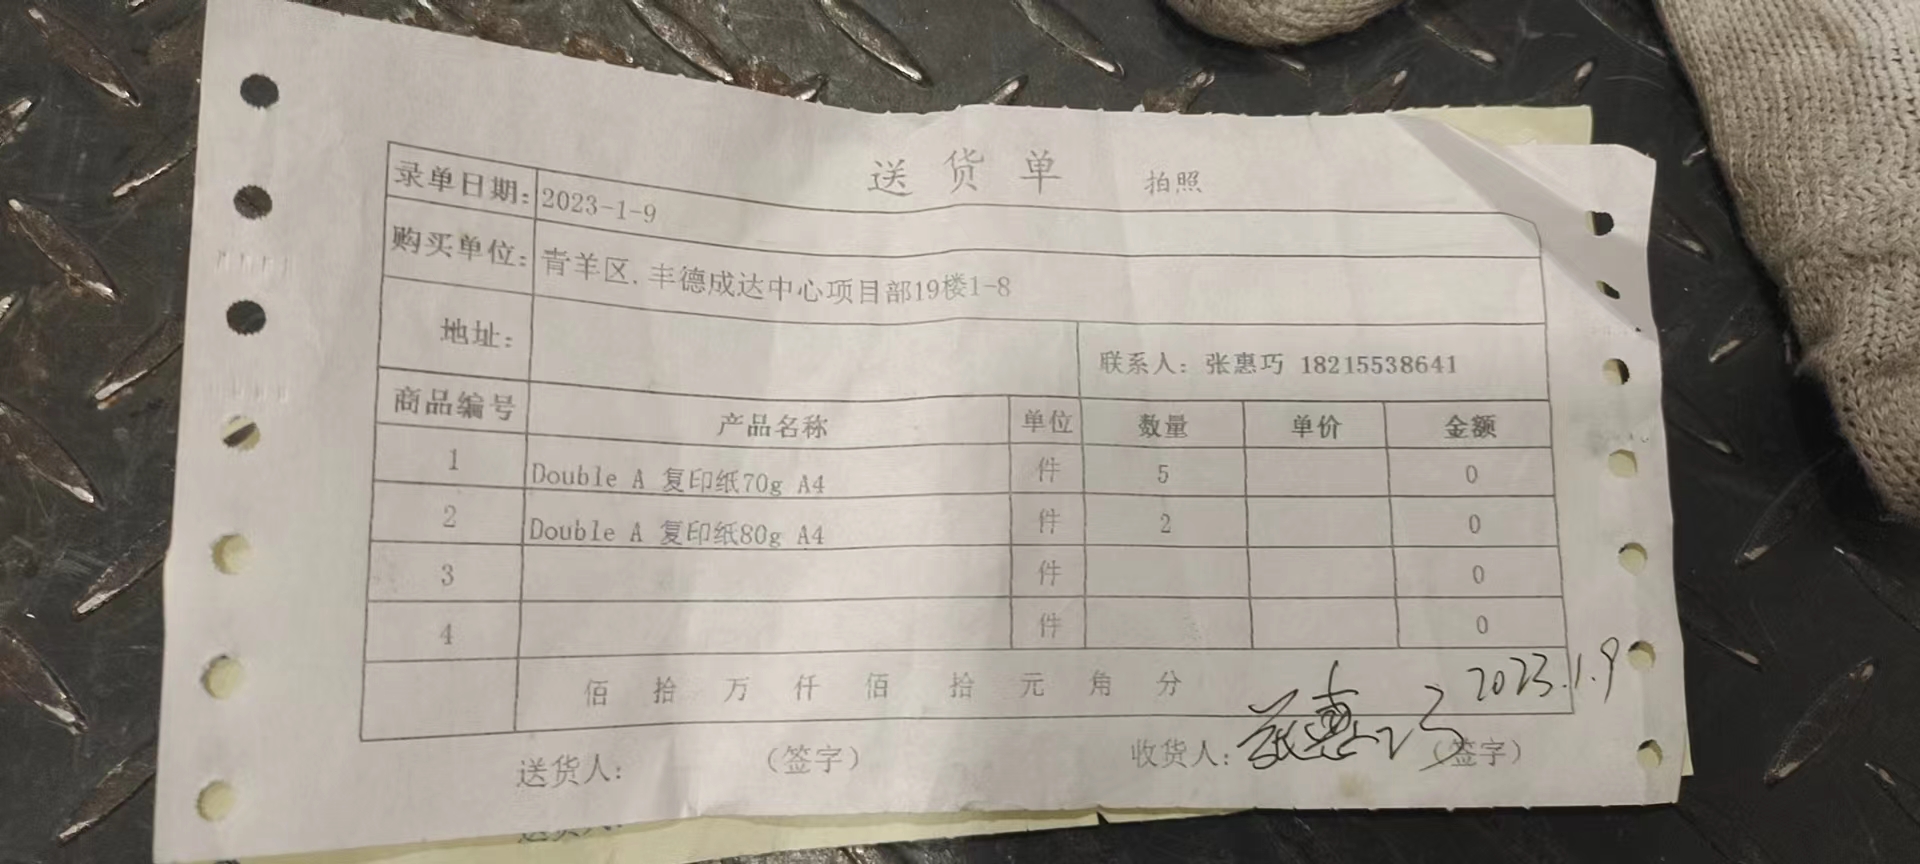 送货单 拍照
录单日期: 2023-1-9
购买单位: 青羊区.丰德成达中心项目部19楼1-8
地址: 联系人: 张惠巧 18215538641
商品编号 产品名称 单位 数量 单价 金额
1 Double A 复印纸70g A4 件 5 0
2 Double A 复印纸80g A4 件 2 0
3 件 0
4 件 0
佰 拾 万 仟 佰 拾 元 角 分 2023.1.9
送货人: (签字) 收货人: 张惠巧 (签字)
送货人: